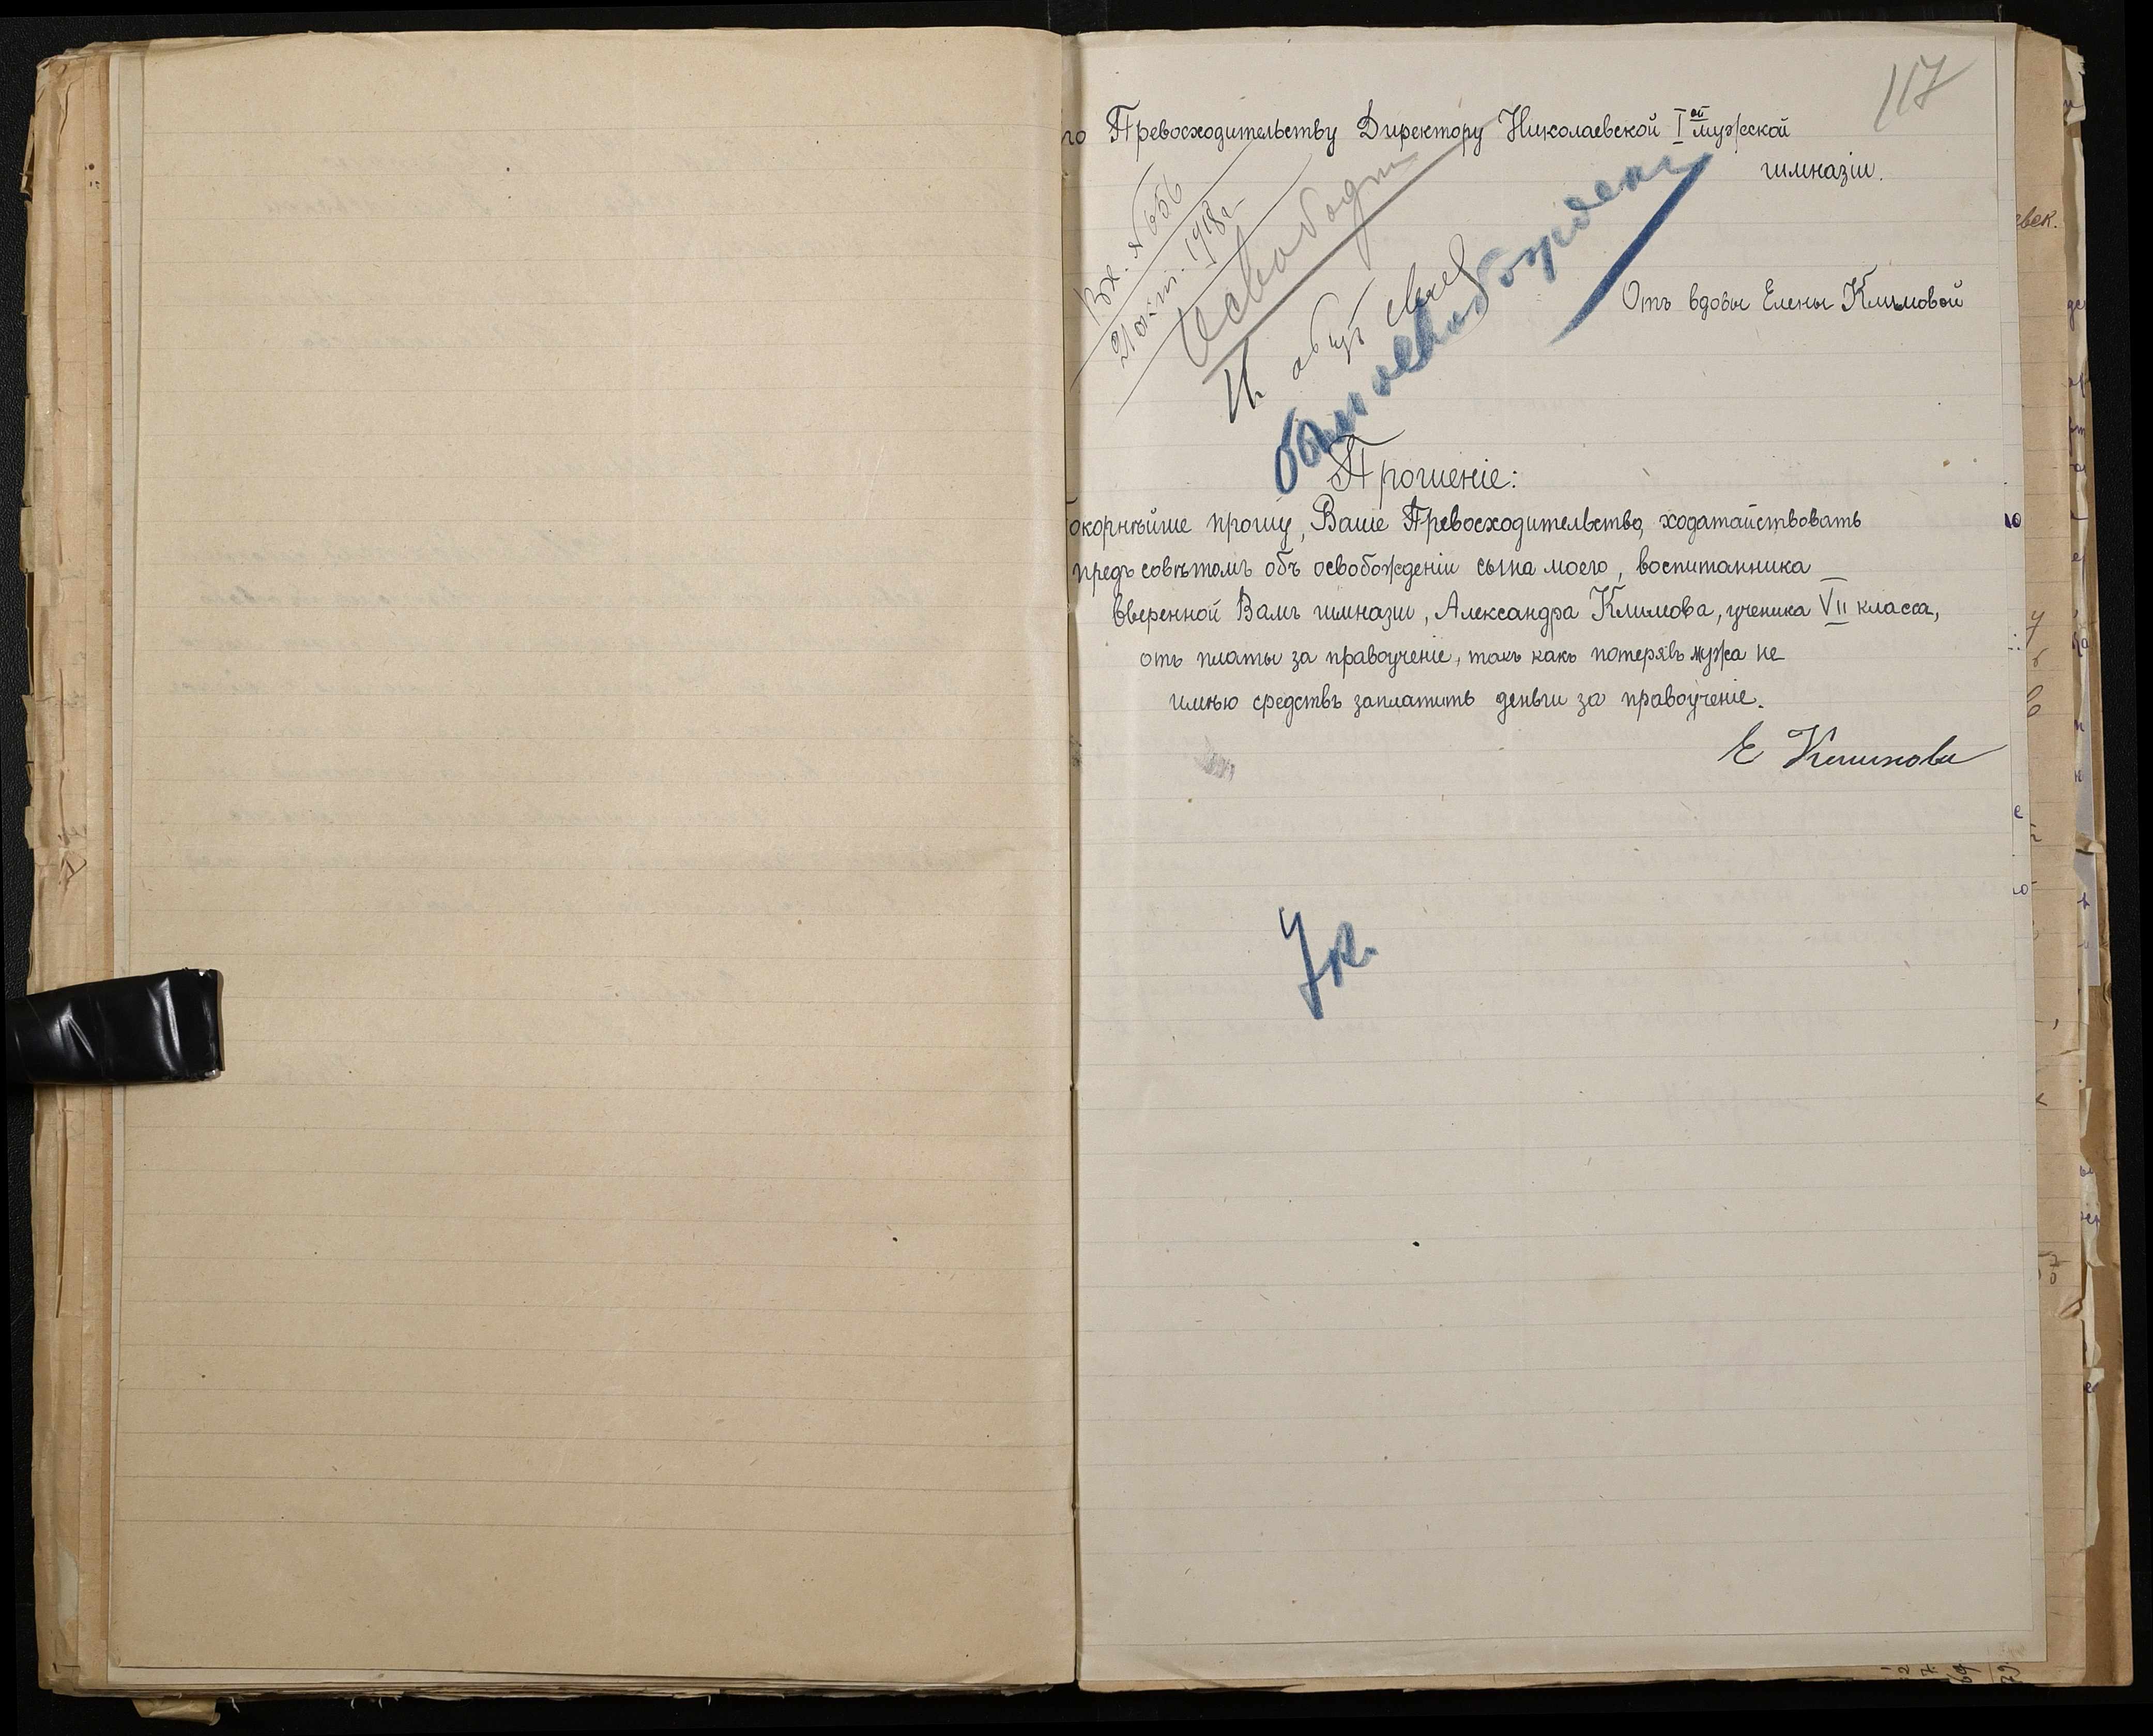 117
го Превосходительству Директору Николаевской I ой мужской
гимназіи.
Вх. № 656
21 окт. 1918 г.
Освободить
Отъ вдовы Елены Климовой
освобожденъ
Прошеніе:
окорнѣйше прошу, Ваше Превосходительство, ходатайствовать
предъ совѣтомъ объ освобожденіи сына моего, воспитанника
вверенной Вамъ гимназіи, Александра Климова, ученика VII класса,
отъ платы за правоученіе, такъ какъ потерявъ мужа не
имѣю средствъ заплатить деньги за правоученіе.
Е Климова